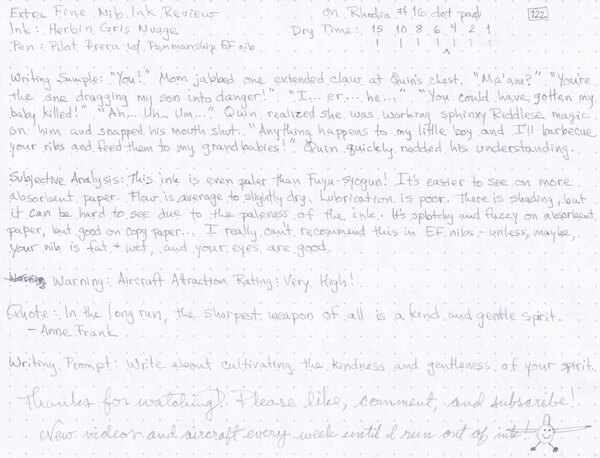 Extra Fine Nib Ink Review on Rhodia #16 dot pad 722
Ink: Herbin Gris Nuage Dry Time: 15 10 8 6 4 2 1
Pen: Pilot Prera w/ Penmanship EF nib
Writing Sample: "You!" Mom jabbed one extended claw at Quin's chest. "Ma'am?" "You're
the one dragging my son into danger!" "I... er... he..." "You could have gotten my
baby killed!" "Ah... Uh.. Um..." Quin realized she was working sphinxy Riddlese magic
on him and snapped his mouth shut. "Anything happens to my little boy and I'll barbecue
your ribs and feed them to my grandbabies!" Quin quickly nodded his understanding.
Subjective Analysis: This ink is even paler than Fuyu-syogun! It's easier to see on more
absorbent paper. Flow is average to slightly dry. Lubrication is poor. There is shading, but
it can be hard to see due to the paleness of the ink. It's splotchy and fuzzy on absorbent
paper, but good on copy paper... I really can't recommend this in EF nibs - unless, maybe,
your nib is fat & wet, and your eyes are good.
Warning: Aircraft Attraction Rating: Very High!
Quote: In the long run, the sharpest weapon of all is a kind and gentle spirit.
- Anne Frank
Writing Prompt: Write about cultivating the kindness and gentleness of your spirit.
Thanks for watching! Please like, comment, and subscribe!
New videos and aircraft every week until I run out of ink!